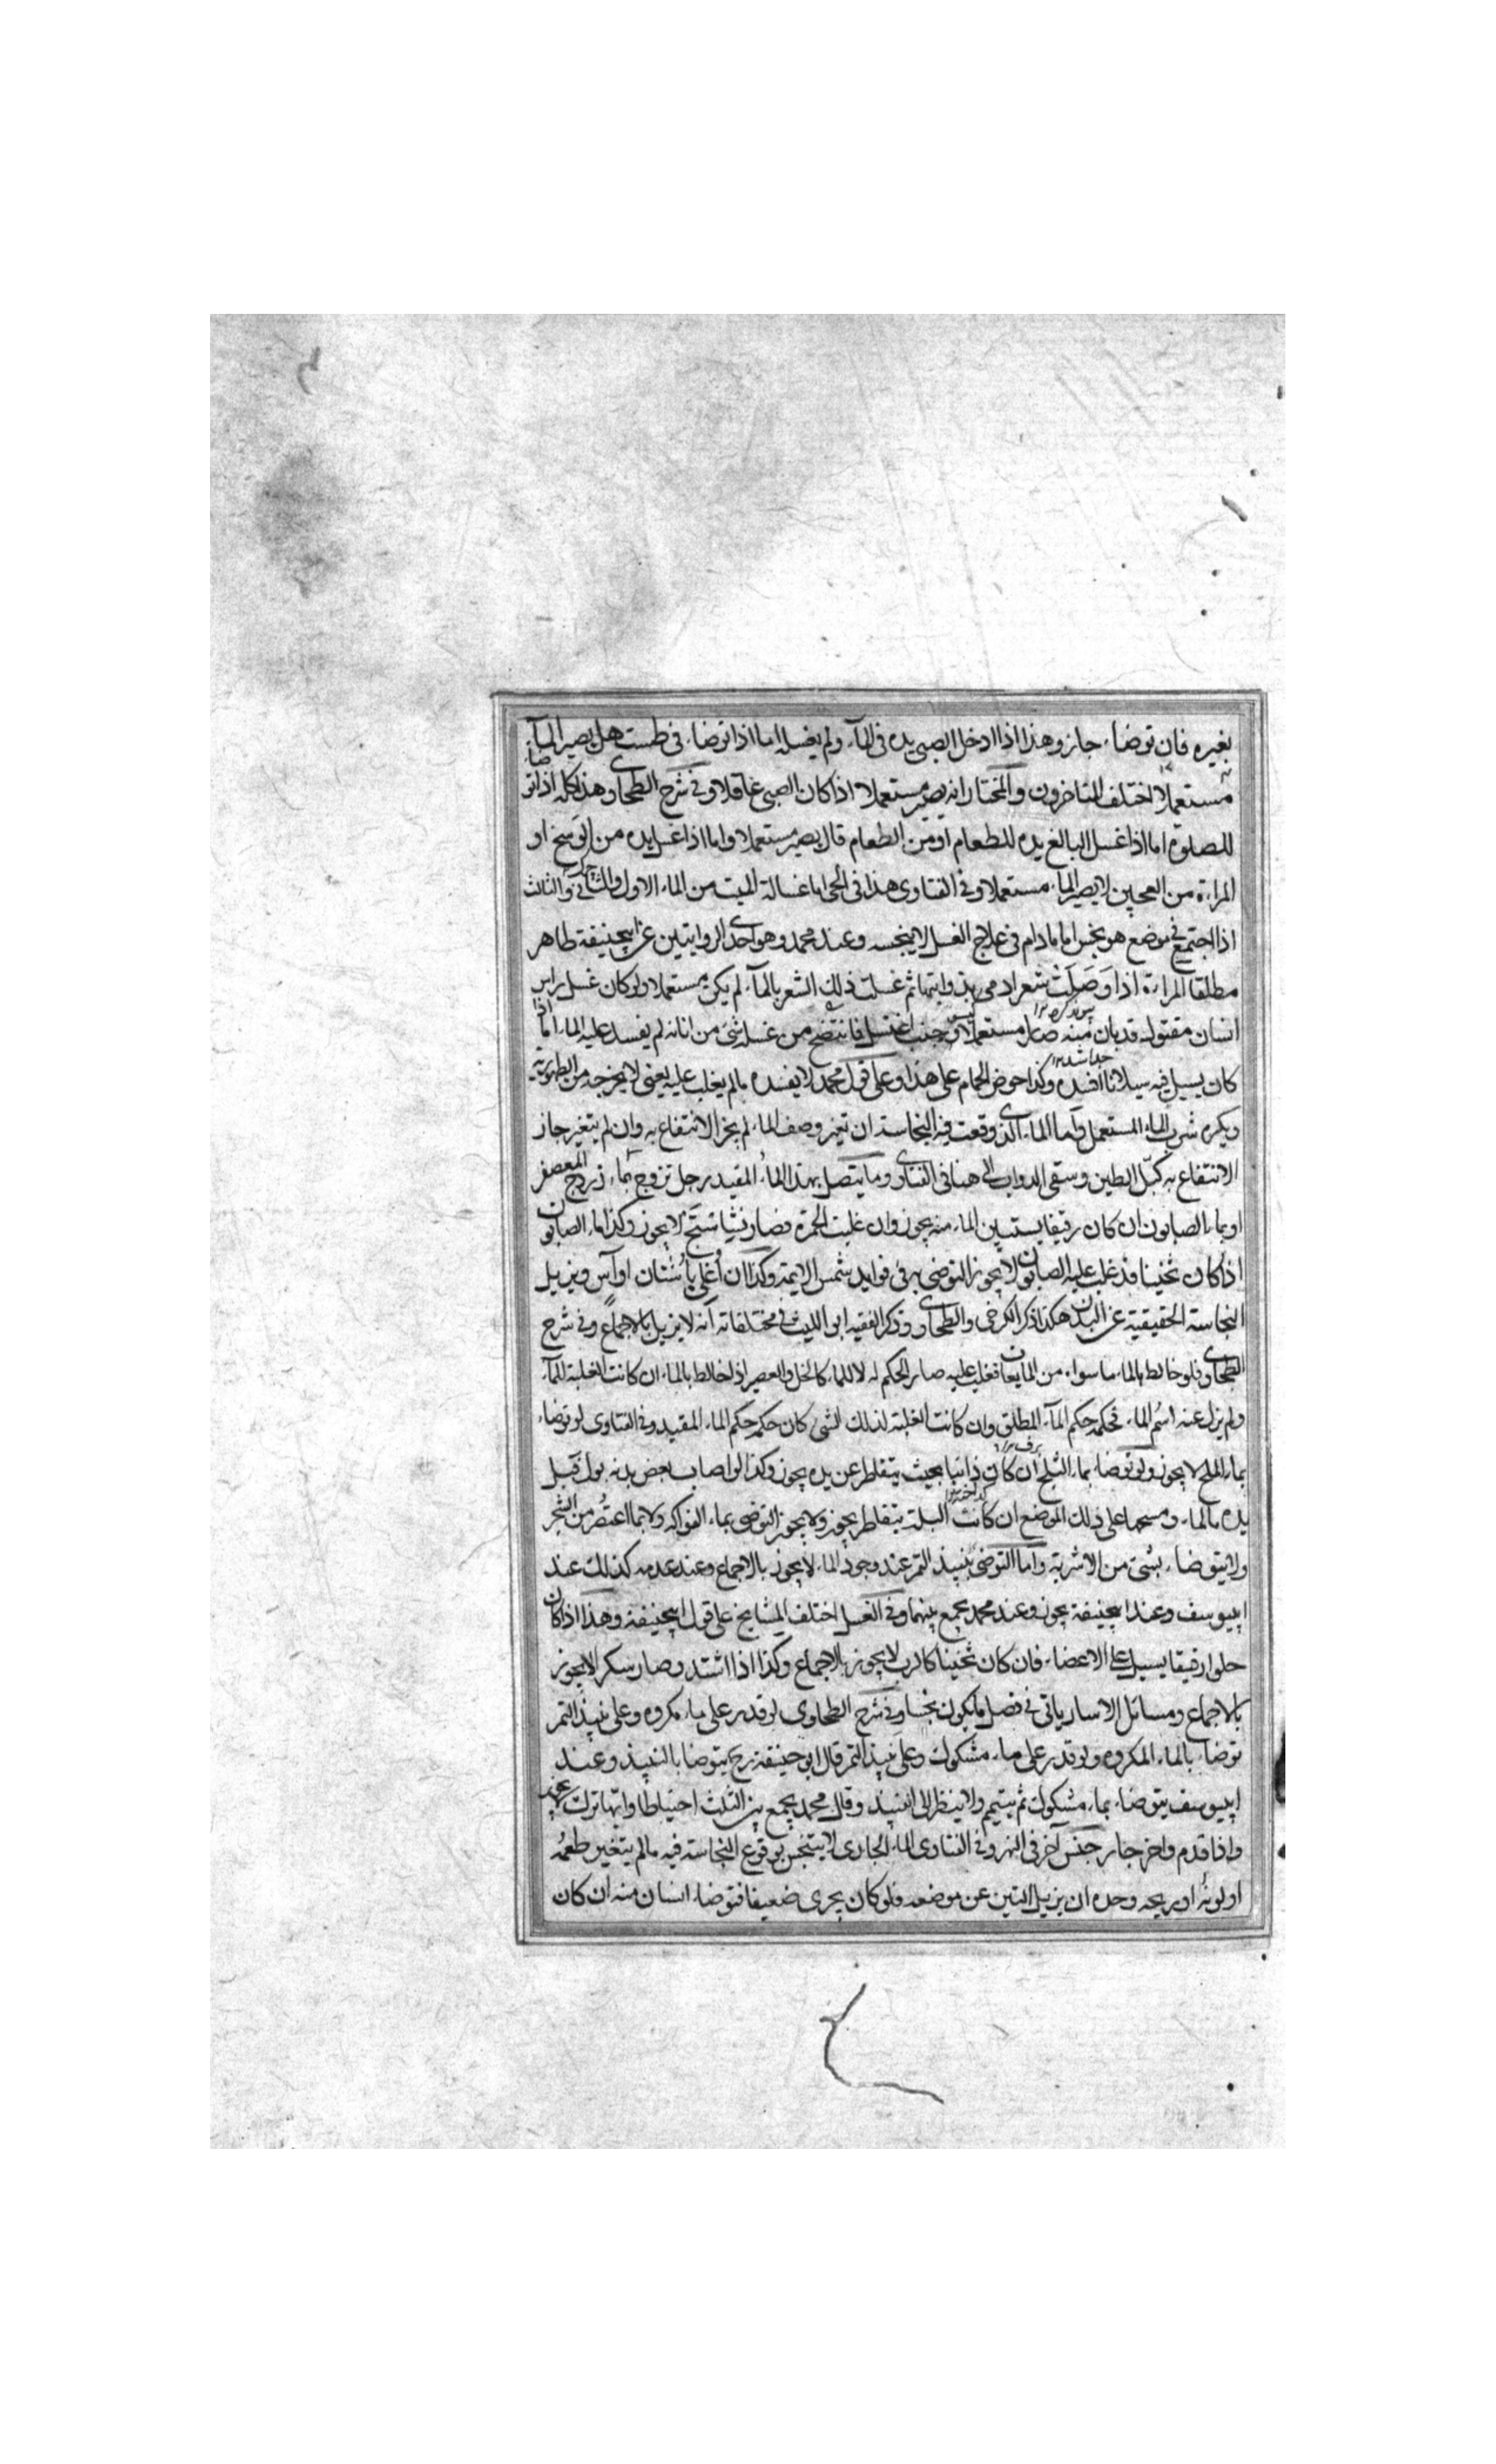 بغيره فان توضاء جاز وهذا اذا ادخل الصبى يده فى المآء ولم يغسله اما اذا توضاء فى طست هل يصير المآء
مستعملا اختلف المتاخرون والمختار انه يصير مستعملا اذا كان الصبى عاقلا وفى شرح الطحاوى هذا كله اذا توضا
للصلوة اما اذا غسل البالغ يده للطعام او من الطعام قال يصير مستعملا واما اذا غسل يده من الوسخ او
المراءة من العجين لا يصير الماء مستعملا وفى الفتاوى هذا فى الحى اما غسالة الميت من الماء الاول والثانى والثالث
اذا اجتمع فى موضع هو نجس اما مادام فى علاج الغسل لا ينجسه وعند محمد وهو احدى الروايتين عن ابيحنيفة طاهر
مطلقا المراءة اذا وصلت شعر ادمى بذوابتها ثم غسلت ذلك الشعر بالمآء لم يكن مستعملا ولو كان غسل راس
انسان مقتول قد بان منه صار مستعملا جنب اغتسل فانتضح من غسله شئ من انائه لم يفسد عليه الماء اما اذا
كان يسيل فيه سيلانا افسده وكذا حوض الحمام على هذا وعلى قول محمد لا يفسده مالم يغلب عليه يعنى لا يخرجه من الطهورية
ويكره شرب الماء المستعمل واما الماء الذى وقعت فيه النجاسة ان تغير وصف الماء لم يجز الانتفاع به وان لم يتغير جاز
الانتفاع به كبلّ الطين وسقى الدواب الى هنا فى الفتاوى وما يتصل بهذا الماء المقيد رجل توضا بماء زردج المعصفر
او بماء الصابون ان كان رقيقا يستبين الماء منه يجوز وان غلبت الحمرة فصار نشاستج لا يجوز وكذا ماء الصابون
اذا كان ثخينا قد غلب عليه الصابون لا يجوز التوضى به فى فوايد شمس الايمة وكذا ان اغلى باشنان او آس ويزيل
النجاسة الحقيقية عن البدن هكذا ذكر الكرخى والطحاوى وذكر الفقيه ابو الليث فى مختلفاته انه لا يزيل بالاجماع وفى شرح
الطحاوى فلو خالط بالماء ما سواه من المايعات فغلب عليه صار الحكم له لا للماء كالخل والعصير اذا خالط بالماء ان كانت الغلبة للمآء
ولم يزل عنه اسم الماء فحكمه حكم المآء المطلق وان كانت الغلبة لذلك الشئ كان حكمه حكم الماء المقيد وفى الفتاوى لو توضاء
بماء الملح لا يجوز ولو توضاء بماء الثلج ان كان ذائبا بحيث يتقاطر عن يده يجوز وكذا لو اصاب بعض بدنه بول فبل
يده بالماء ومسحها على ذلك الموضع ان كانت البلة يتقاطر يجوز ولا يجوز التوضى بماء الفواكه ولا بما اعتصر من الشجر
ولا يتوضاء بشئ من الاشربة واما التوضى بنبيذ التمر عند وجود الماء لا يجوز بالاجماع وعند عدمه كذلك عند
ابييوسف وعند ابيحنيفة يجوز وعند محمد يجمع بينهما وفى الغسل اختلف المشايخ على قول ابيحنيفة وهذا اذا كان
حلوا رقيقا يسيل على الاعضاء فان كان ثخينا كالرب لا يجوز بالاجماع وكذا اذا اشتد وصار سكرا لا يجوز
بالاجماع ومسائل الاسار ياتى فى فصل ما يكون نجسا وفى شرح الطحاوى لو قدر على ماء مكروه وعلى نبيذ التمر
توضاء بالماء المكروه ولو قدر على ماء مشكوك وعلى نبيذ التمر قال ابو حنيفة رح يتوضا بالنبيذ وعند
ابييوسف يتوضاء بماء مشكوك ثم يتيمم ولا ينظر الى النبيذ وقال محمد يجمع بين الثلث احتياطا وايها ترك
واذا قدم واخر جاز جنس آخر فى النهر وفى الفتاوى الماء الجارى لا يتنجس بوقوع النجاسة فيه مالم يتغير طعمه
او لونه او ريحه وحده ان يزيل التبن عن موضعه فلو كان يجرى ضعيفا فتوضاء انسان منه ان كان